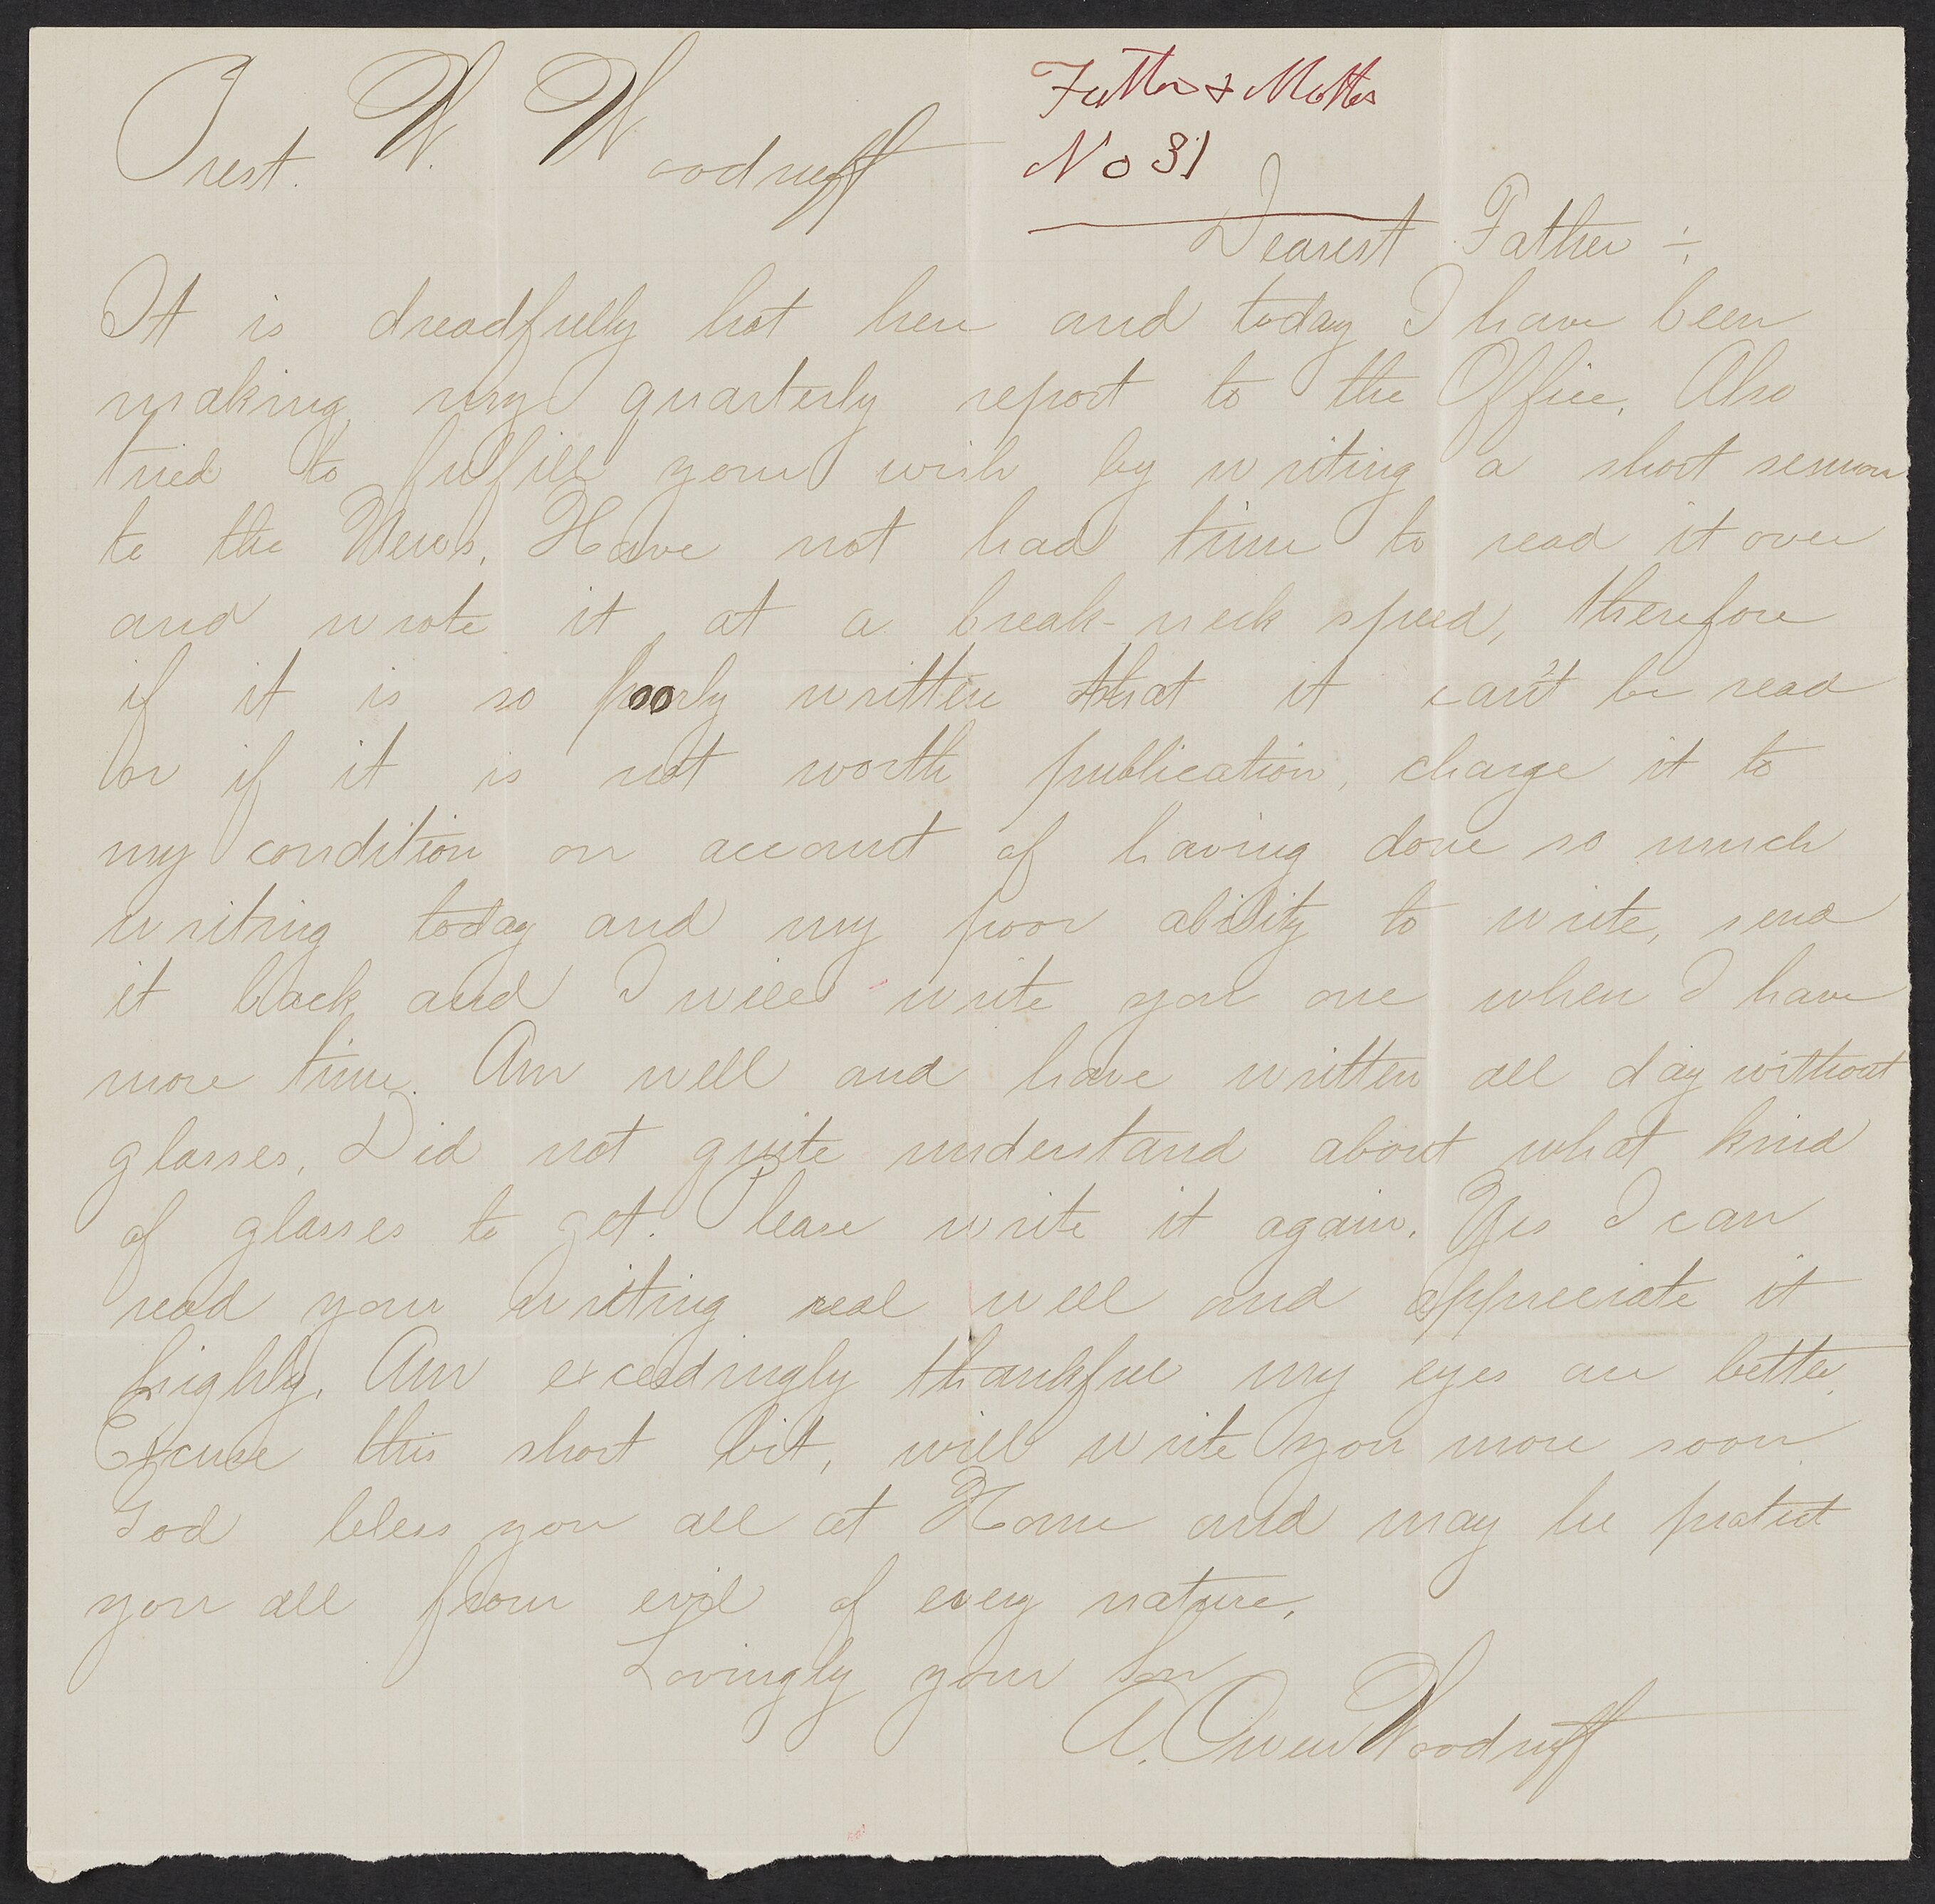 Prest. W. Woodruff
Father & Mother
No 31
Dearest Father ÷
It is dreadfully hot here and today I have been
making my quarterly report to the Office. Also
tried to fulfill your wish by writing a short sermon
to the News. Have not had time to read it over
and wrote it at a break-neck speed, therefore
if it is so poorly written that it can't be read
or if it is not worth publication, charge it to
my condition on account of having done so much
writing today and my poor ability to write, send
it back and I will write you one when I have
more time. Am well and have written all day without
glasses. Did not quite understand about what kind
of glasses to get. Please write it again. Yes I can
read your writing real well and appreciate it
highly. Am exceedingly thankful my eyes are better.
Excuse this short bit, will write you more soon
God bless you all at Home and may he protect
you all from evil of every nature.
Lovingly your Son
A. Owen Woodruff